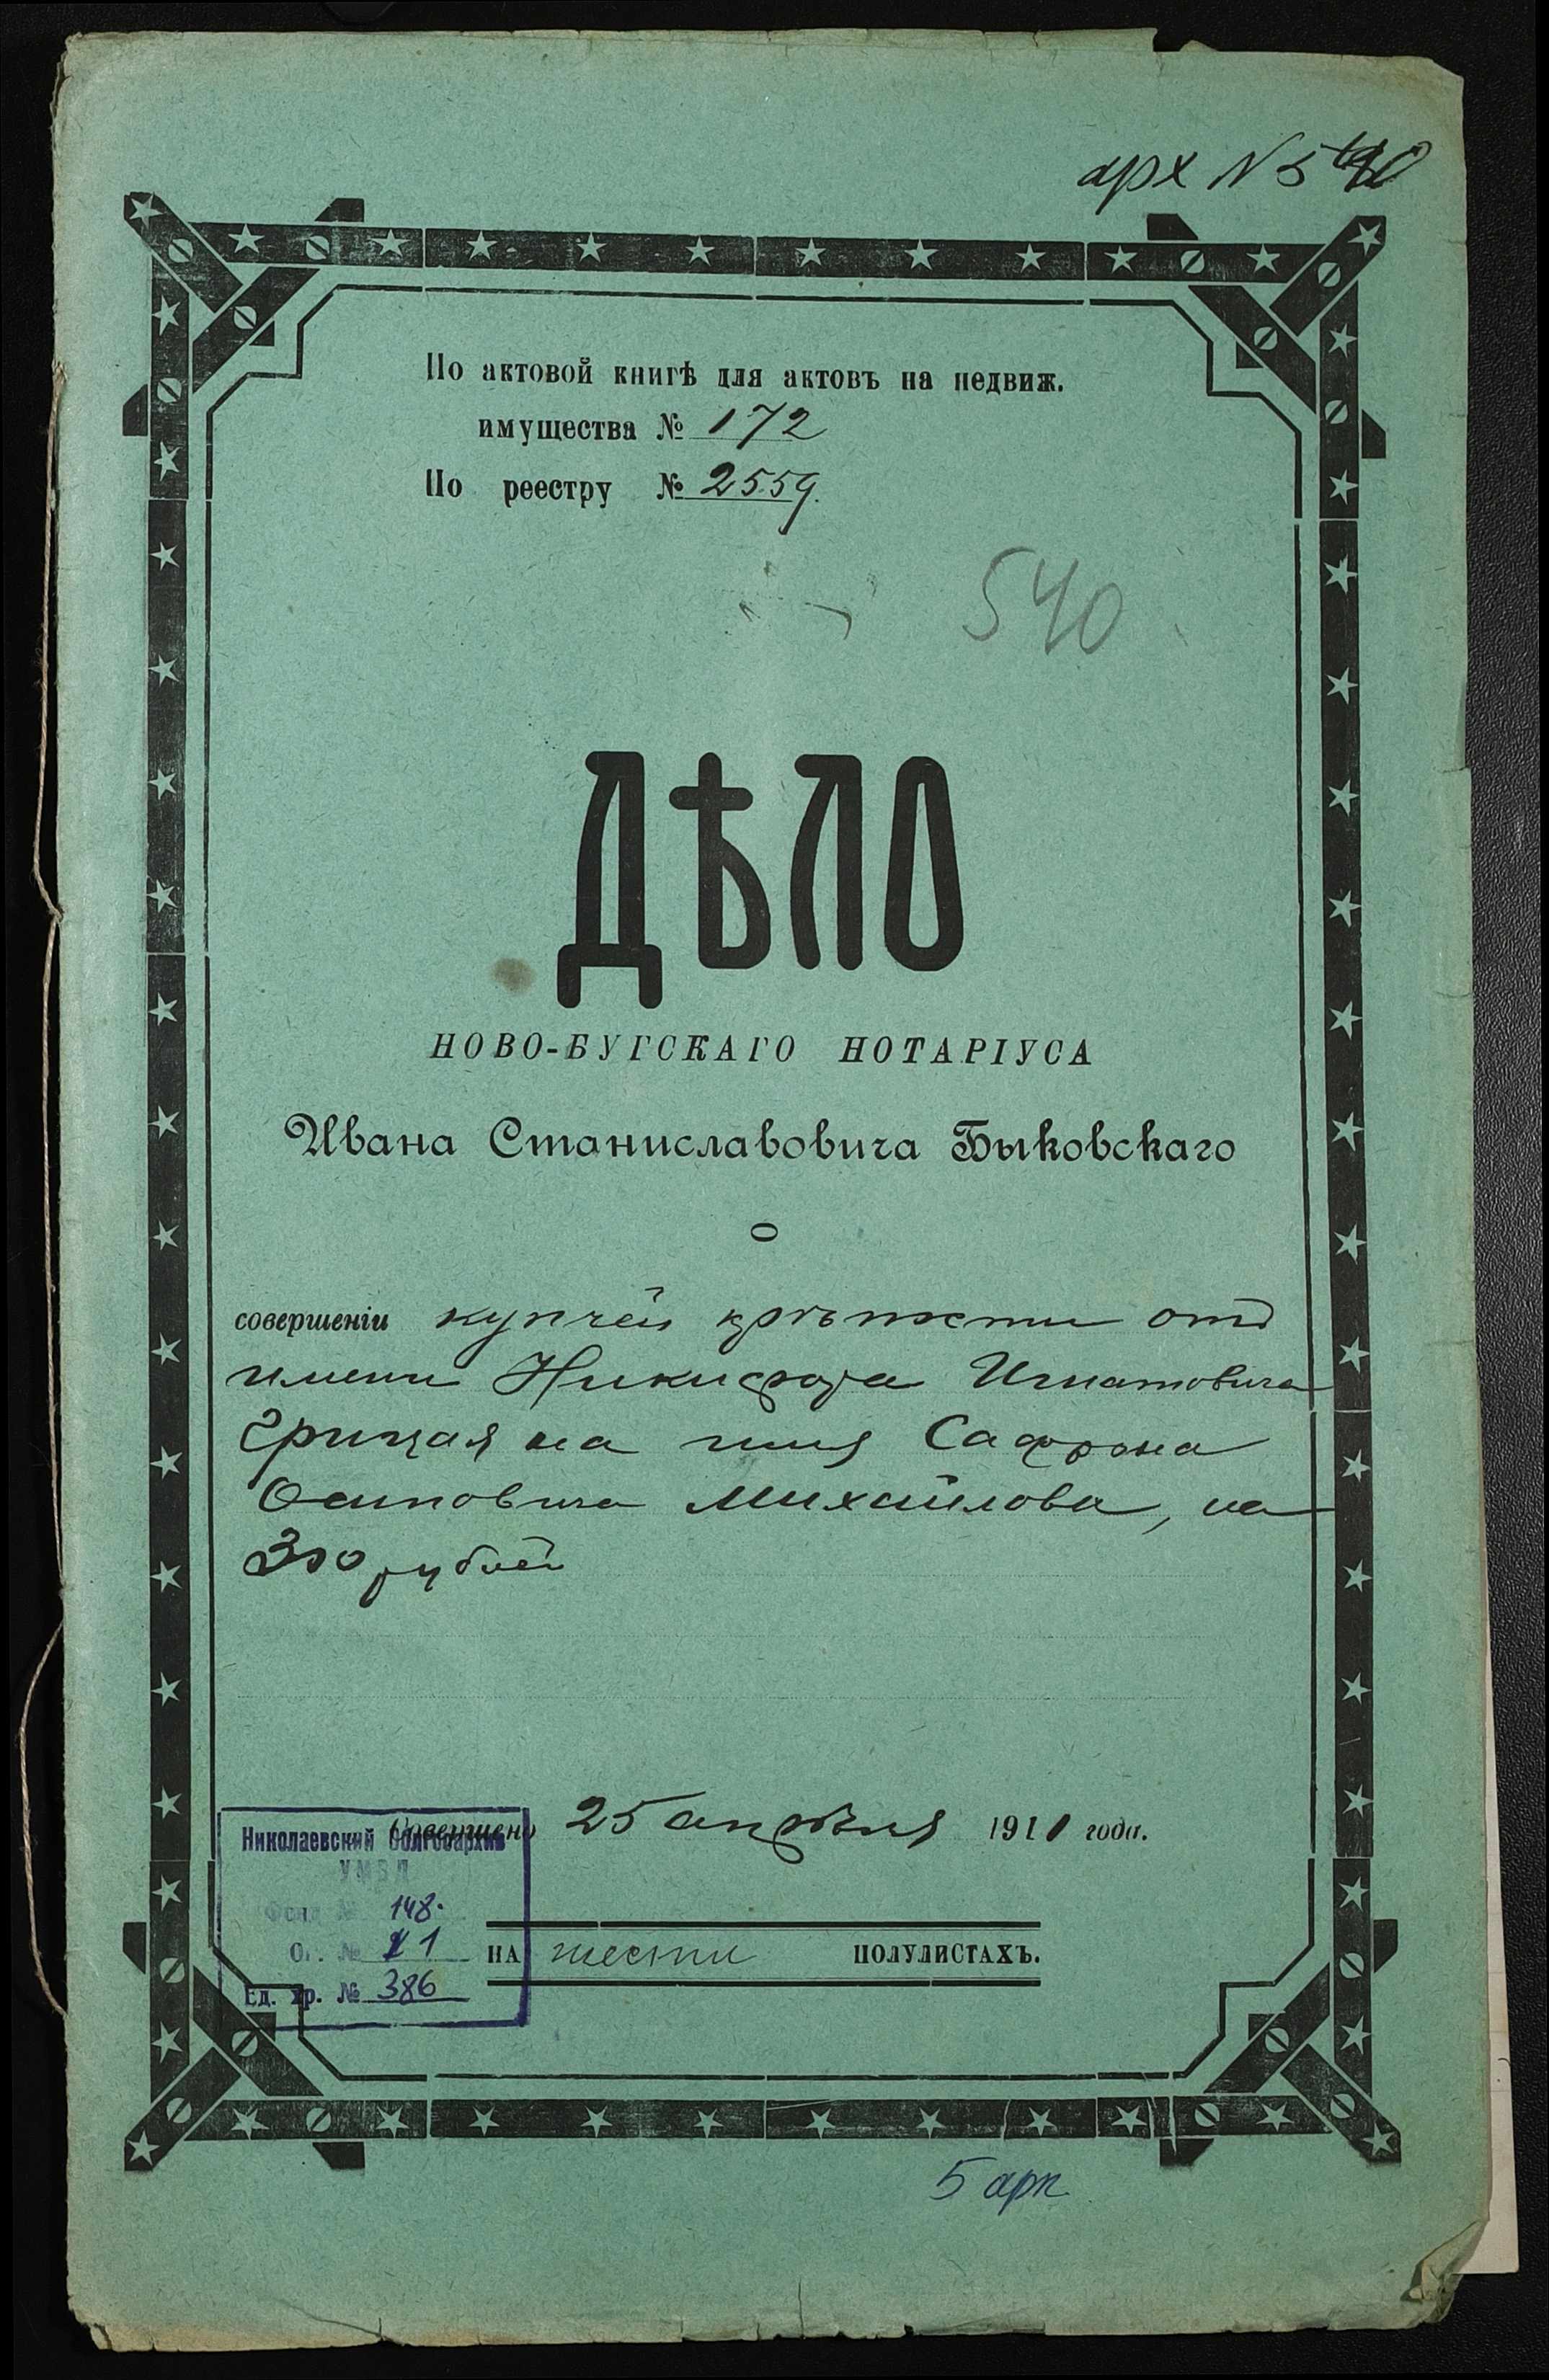 арх N 540
По актовой книгѣ для актовъ на недвиж.
имущества № 172
По реестру № 2559.
540
ДѢЛО
НОВО-БУГСКАГО НОТАРІУСА
Ивана Станиславовича Быковскаго
О
совершеніи купчей крѣпости отъ
имени Никифора Игнатовича
Грицая на имя Сафрона
Осиповича Михайлова, на
300 рублей
Совершено 25 апрѣля 1911 года.
Николаевский Облгосархив
УМВД
Фонд № 148.
Оп. № 1
Ед. хр. № 386
НА шести ПОЛУЛИСТАХЪ.
5 арк.